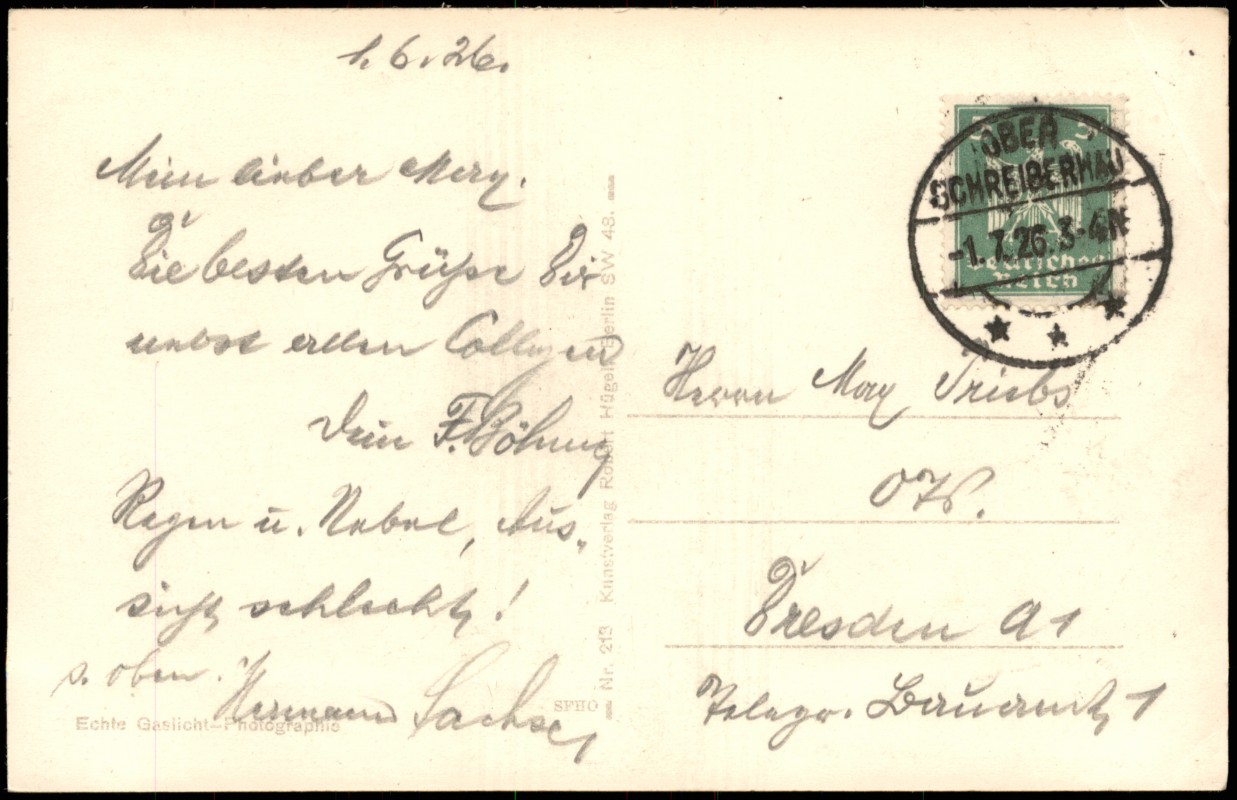 1.6.26.
Mein lieber Max.
Die besten Grüße Dir
nebst allen Collegen
Dein F. Böhme
Regen u. Nebel, Aus-
sicht schlecht!
s. oben.
Hermann Sachse
Echte Gaslicht-Photographie
SFHO
Nr. 213 Kunstverlag Robert Hügel, Berlin SW 48.
5 5
Deutsches
Reich
OBER
SCHREIBERHAU
-1.7.26.3-4N
Herrn Max Triebs
Dresden A 1
Telegr. Bauamt, 1